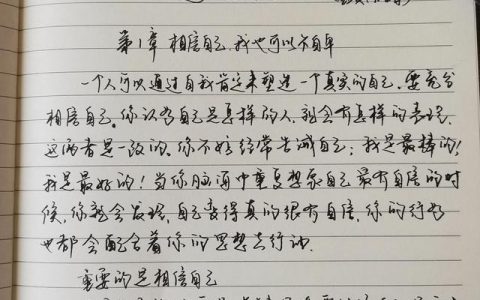 第1章 相信自己,我也可以不自卑
一个人可以通过自我肯定来塑造一个真实的自己,要充分
相信自己。你认为自己是怎样的人,就会有怎样的表现,
这两者是一致的。你不妨经常告诫自己:我是最棒的!
我是最好的!当你脑海中重复想象自己最有自信的时
候,你就会发现,自己变得真的很有自信,你的行为
也都会配合着你的思想去行动.
重要的是相信自己